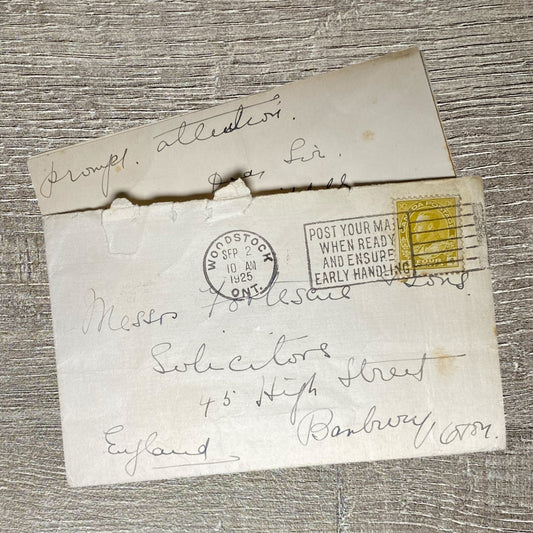 prompt. attention.
Dear Sir.
WOODSTOCK
SEP 2
10 AM
1925
ONT.
POST YOUR MA
WHEN READY
AND ENSURE
EARLY HANDLING
Messrs Fortescue & Sons.
Solicitors
45 High Street
Banbury, Oxon.
England